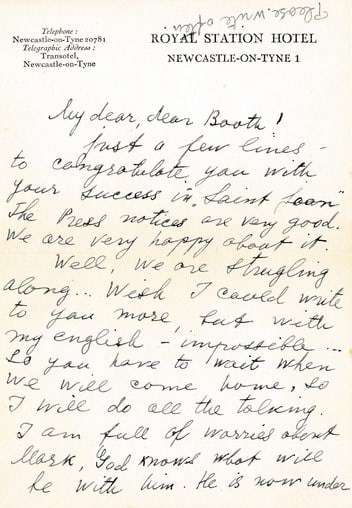 Please write often.
Telephone :
Newcastle-on-Tyne 20781
Telegraphic Address :
Transotel,
Newcastle-on-Tyne
ROYAL STATION HOTEL
NEWCASTLE-ON-TYNE 1
My dear, dear Booth!
Just a few lines -
to congratulate you with
your success in "Saint Joan"
The Press notices are very good.
We are very happy about it.
Well, we are strugling
along... Wish I could write
to you more, but with
my english - impossible...
So you have to wait when
we will come home, so
I will do all the talking.
I am full of worries about
Mark, God knows what will
be with him. He is now under